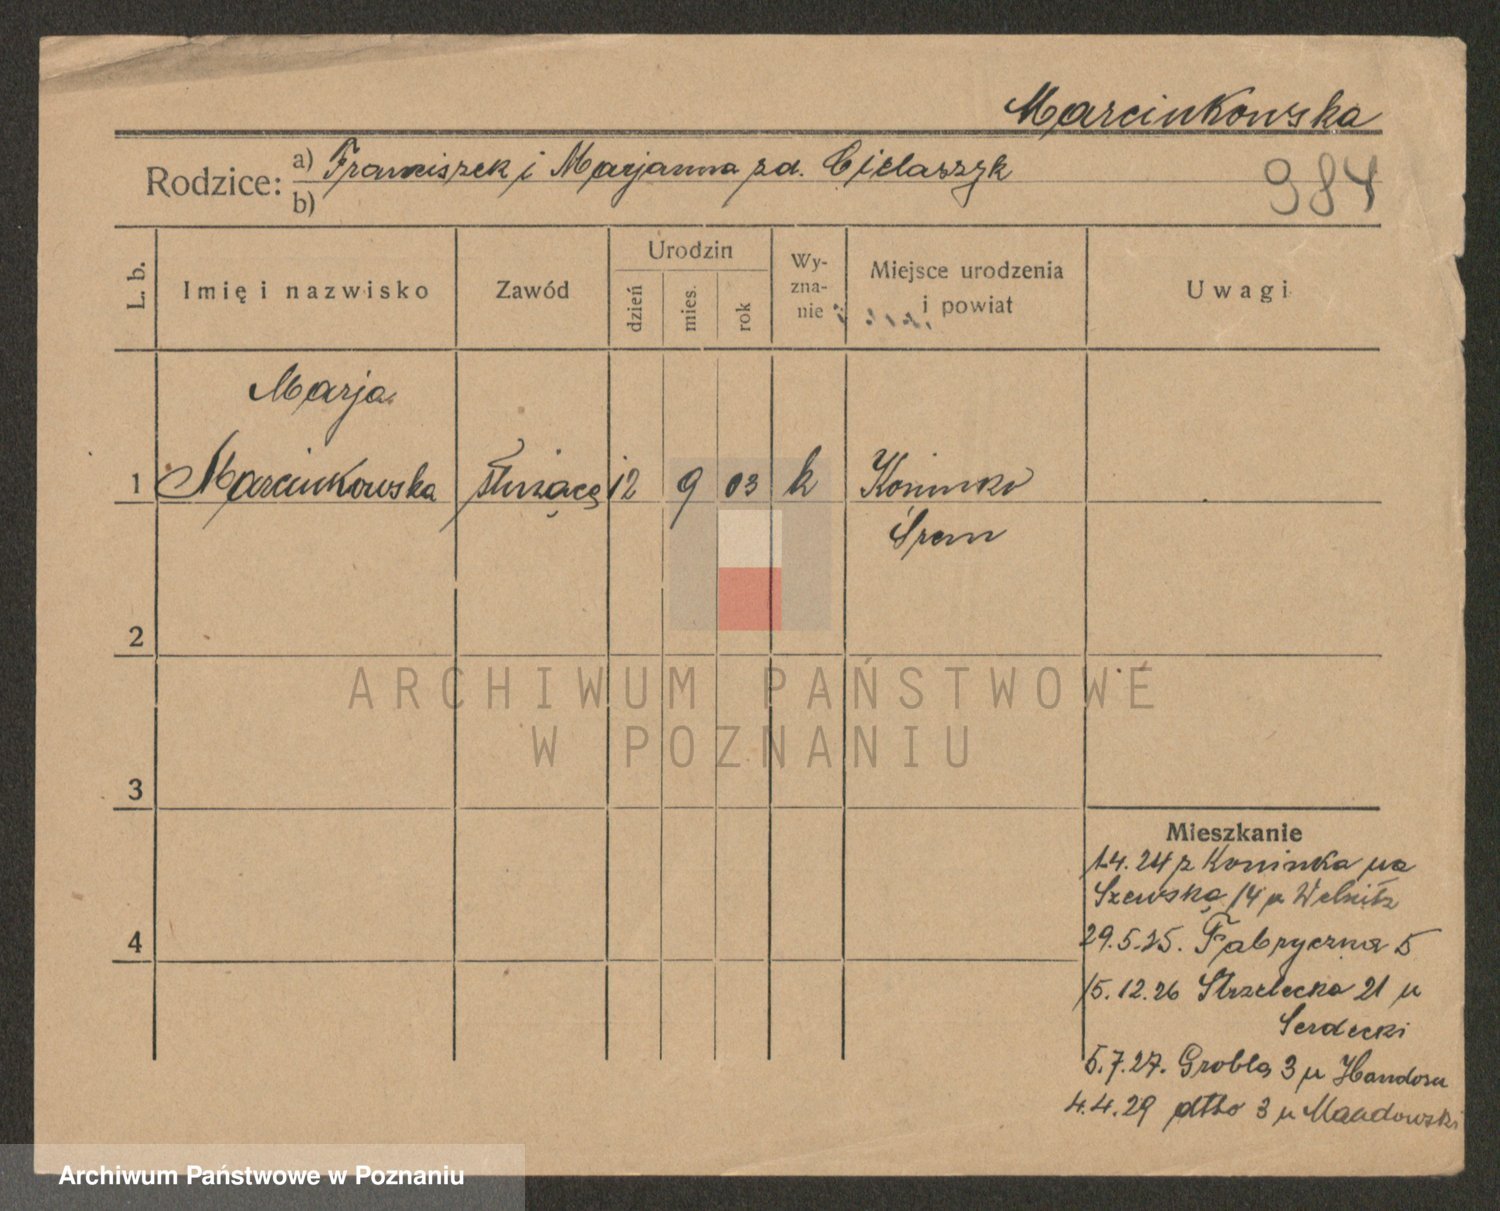 Marcinkowska
Rodzice: a) Franciszek i Marjanna zd. Cielaszyk
b)
984
L. b.
Imię i nazwisko
Zawód
Urodzin
dzień
mies.
rok
Wy-
zna-
nie
Miejsce urodzenia
i powiat
Uwagi
Marja
1 Marcinkowska służąca 12 9 03 k Koninko
Śrem
2
ARCHIWUM PAŃSTWOWE
W POZNANIU
3
4
Mieszkanie
1.4.24 z Koninka na
Szewską 14 u
29.5.25. Fabryczna 5
15.12.26 Strzelecka 21 u
Serdecki
5.7.27. Grobla 3 u
4.4.29 dtto 3 u
Archiwum Państwowe w Poznaniu